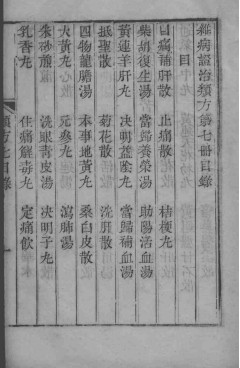 雜病證治類方第七冊目錄
目
目痛補肝散 止痛散 桔梗丸
柴胡復生湯 當歸養榮湯 助陽活血湯
黃連羊肝丸 決明益陰丸 當歸補血湯
抵聖散 菊花散 洗肝散
四物龍膽湯 本事地黃丸 桑白皮散
大黃丸 元參丸 瀉肺湯
朱砂煎 洗眼青皮湯 決明子丸
乳香丸 住痛解毒丸 定痛飲
類方七目錄